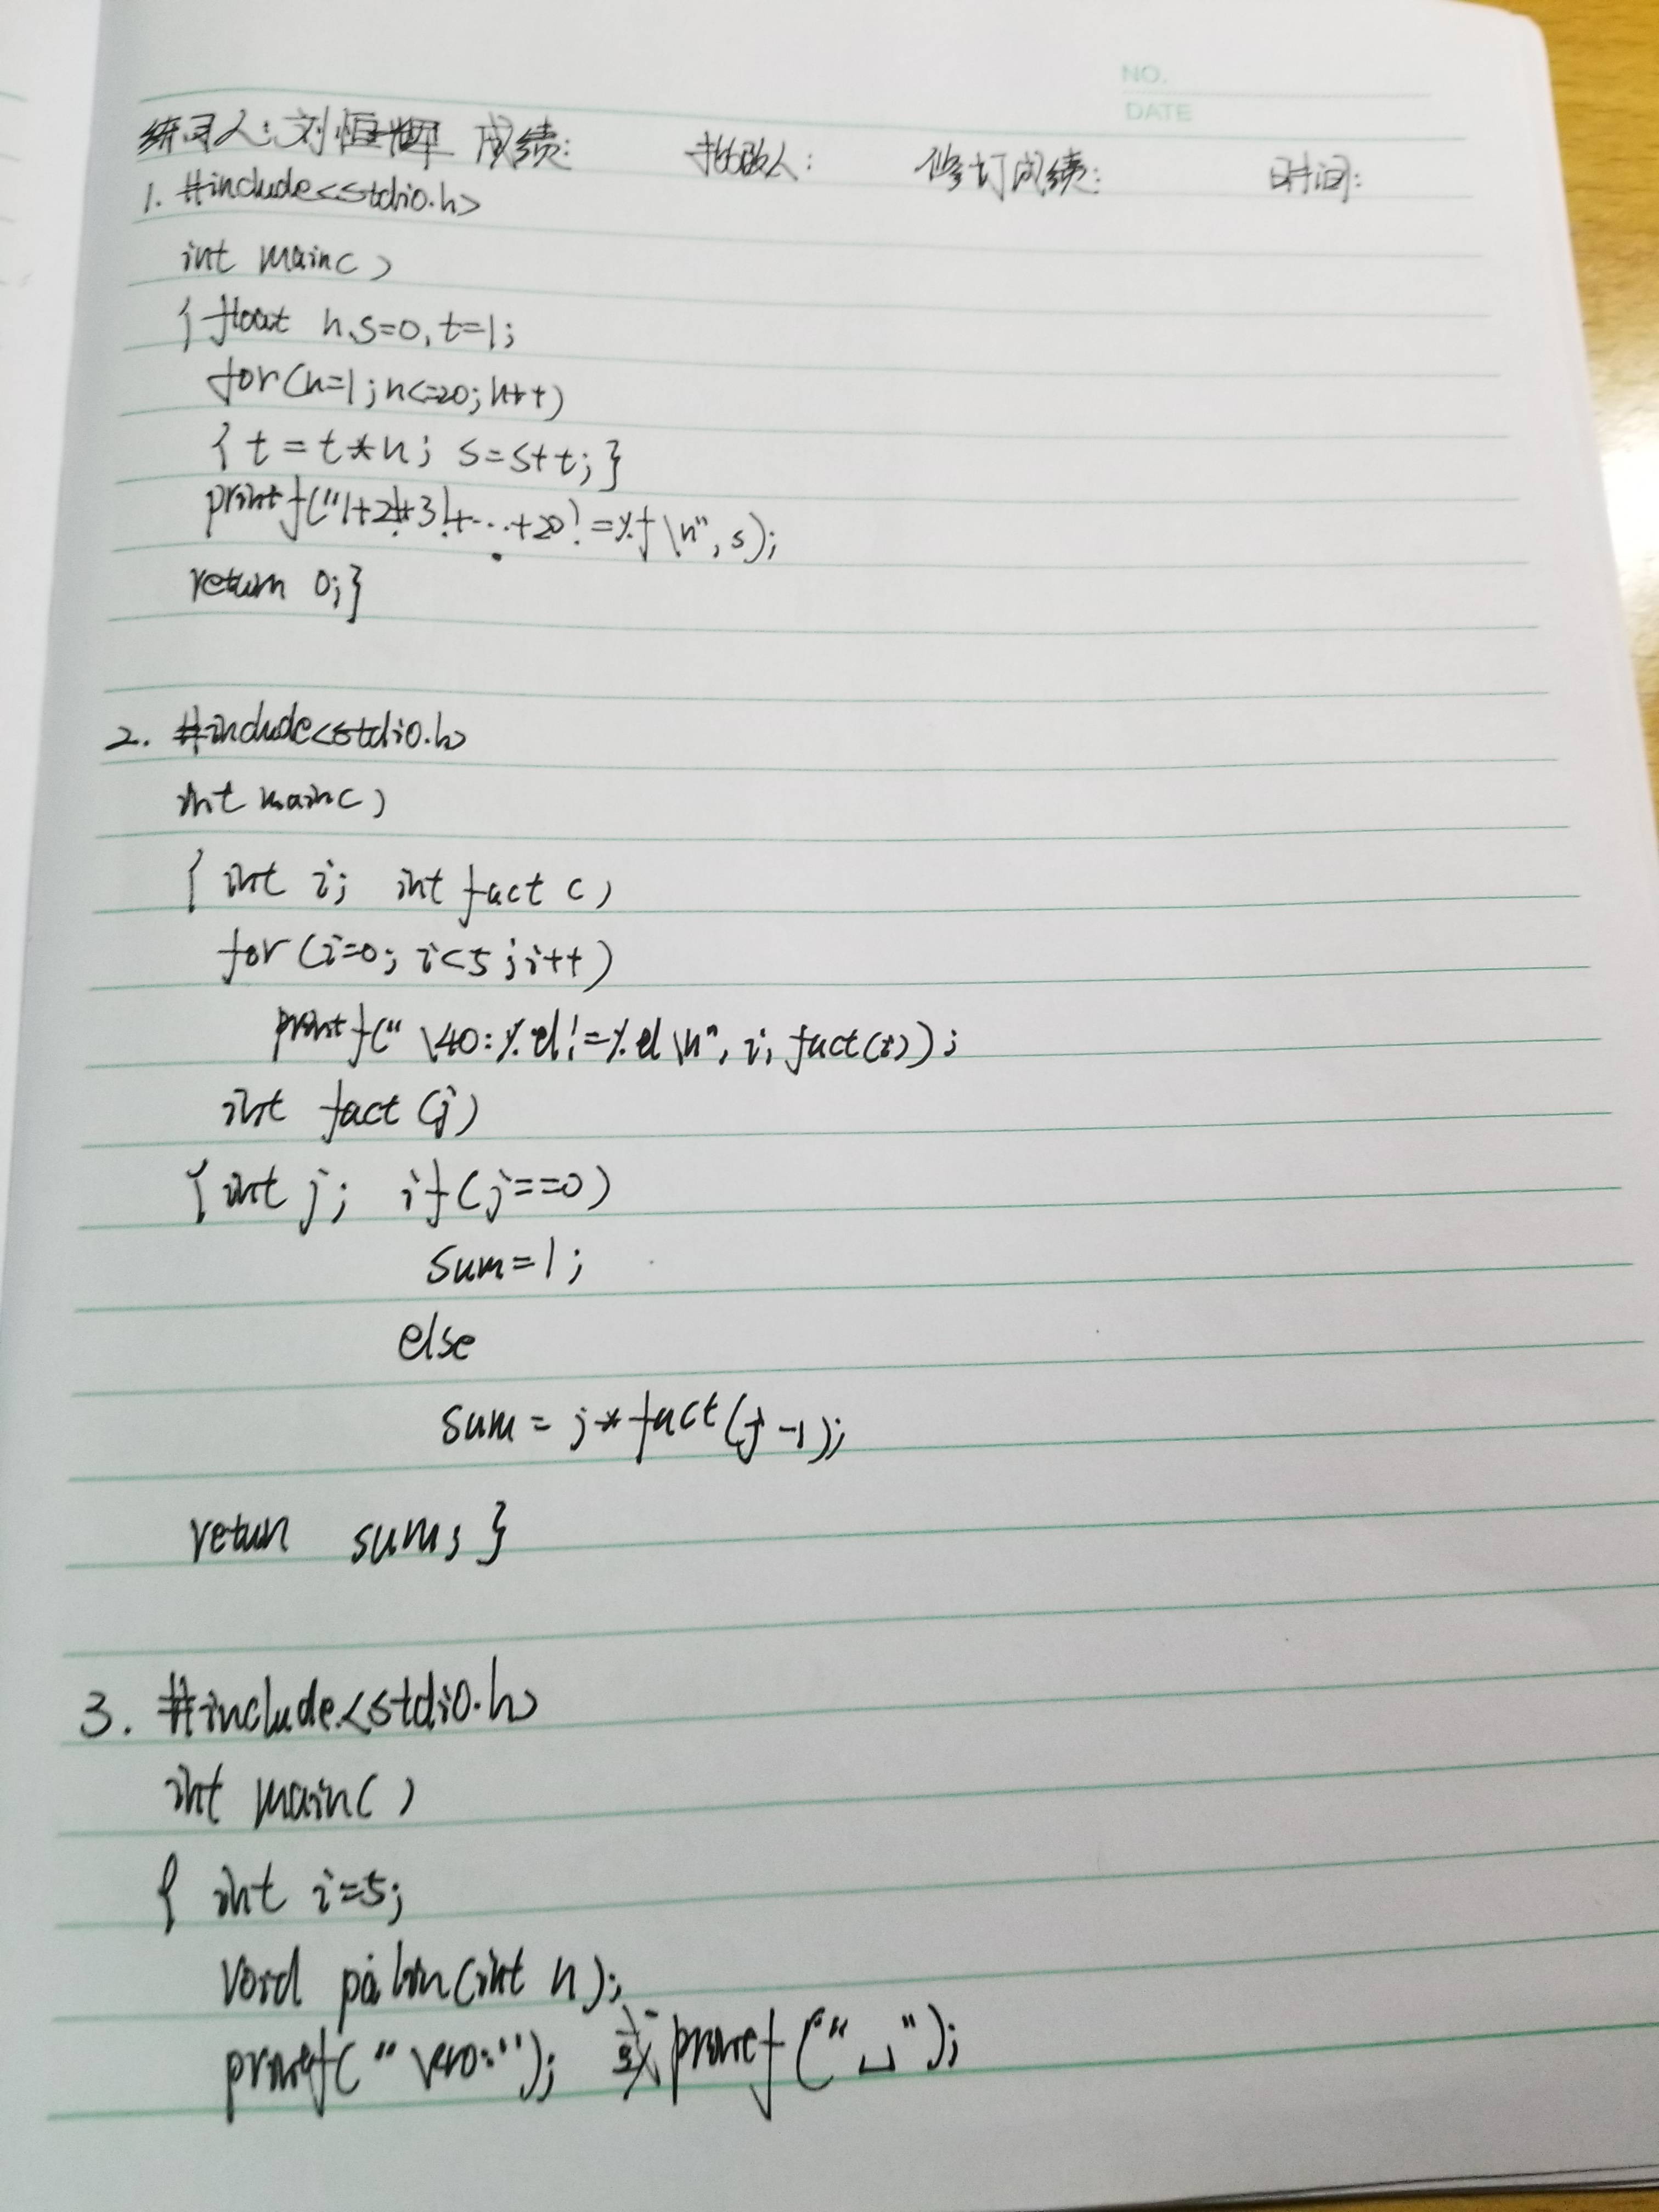 NO.
DATE
练习人:刘恒辉 成绩: 批改人: 修订成绩: 时间:
1. #include<stdio.h>
int main()
{float n,s=0,t=1;
for(n=1;n<=20;n++)
{t=t*n; s=s+t;}
printf("1+2!+3!+...+20!=%f\n",s);
return 0;}
2. #include<stdio.h>
int main()
{int i; int fact()
for(i=0;i<5;i++)
printf("\40:%d!=%d\n",i,fact(i));
int fact(j)
{int j; if(j==0)
sum=1;
else
sum=j*fact(j-1);
return sum;}
3. #include<stdio.h>
int main()
{int i=5;
void palin(int n);
printf("\40:"); 或printf("␣");